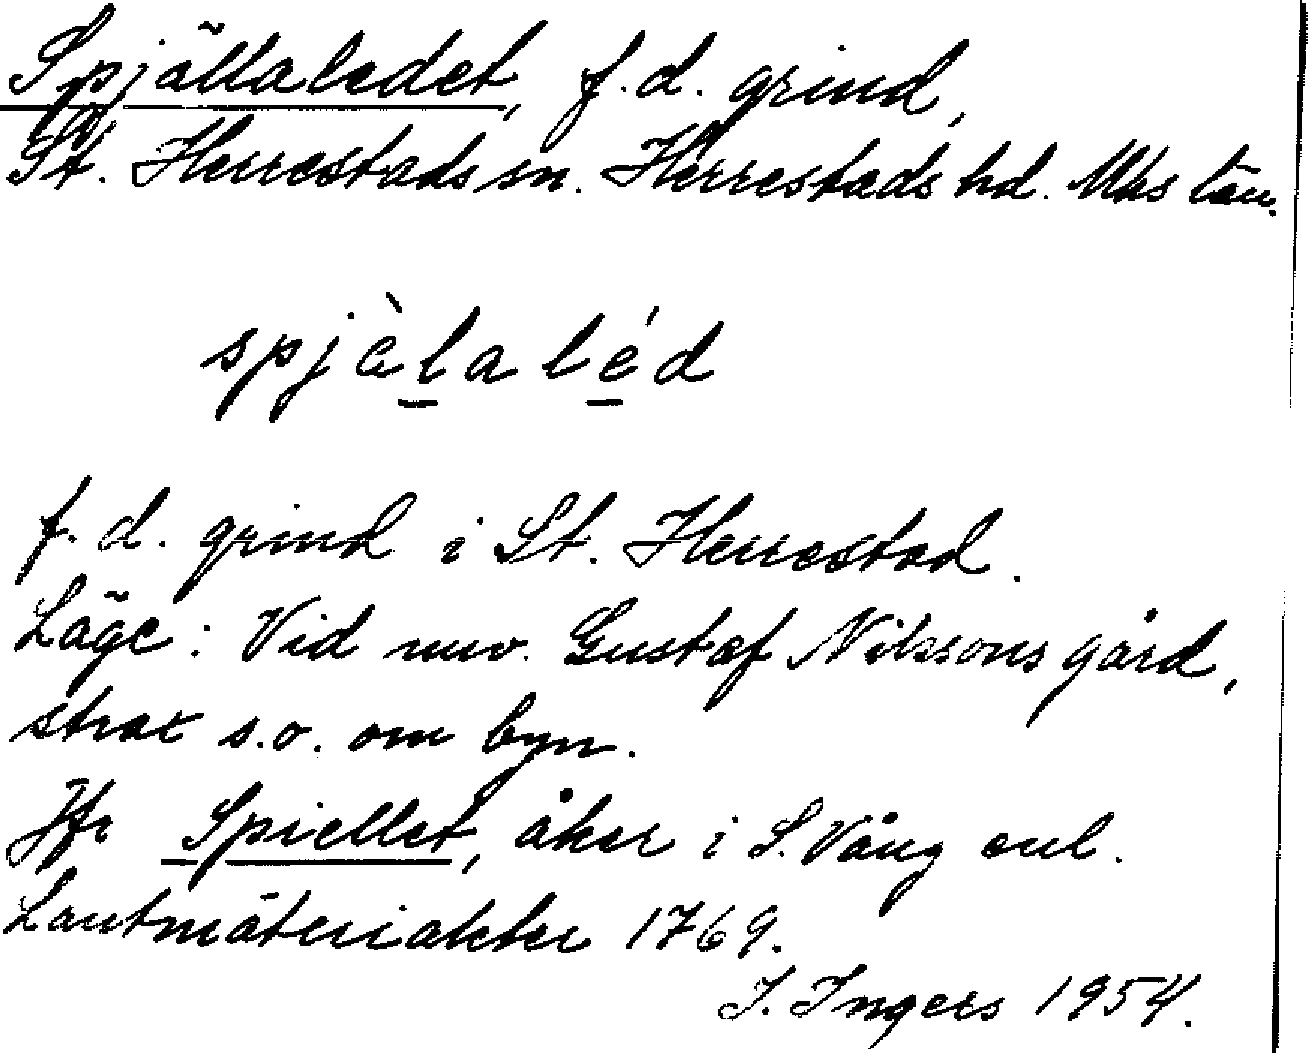 Spjällaledet, f.d. grind,
St. Herrestads sn. Herrestads hd. Mhs län.
spjèlaléd
f. d. grind i St. Herrestad.
Läge: Vid nuv. Gustaf Nilssons gård,
strax s.o. om byn.
Jfr Spiellet, åker i S. Vång enl.
Lantmäteriakter 1769.
I. Ingers 1954.